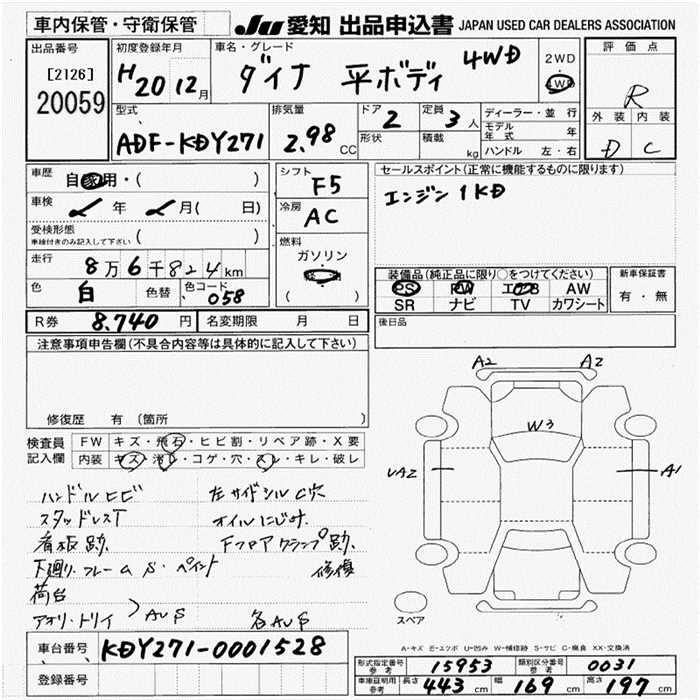 車内保管・守衛保管
JU 愛知 出品申込書 JAPAN USED CAR DEALERS ASSOCIATION
出品番号
[2126]
20059
初度登録年月
H20 12月
車名・グレード
ダイナ 平ボディ 4WD
2WD
4WD
評価点
R
外装 内装
D C
型式
ADF-KDY271
排気量
2.98 CC
ドア 2
形状
定員 3人
積載 kg
ディーラー・並行
モデル年式 年
ハンドル 左・右
車歴 自家用・( )
車検 年 月( 日)
受検形態
車検付きのみ記入して下さい ( )
走行 8万6千824km
色 白 色替 色コード 058
シフト F5
冷房 AC
燃料
ガソリン
軽油
( )
セールスポイント(正常に機能するものに限ります)
エンジン 1KD
装備品(純正品に限り○をつけてください)
PS PW エアB AW
SR ナビ TV カワシート
新車保証書
有・無
R券 8.740 円 名変期限 月 日
後日品
注意事項申告欄(不具合内容等は具体的に記入して下さい)
修復歴 有(箇所 )
検査員記入欄
FW キズ・飛石・ヒビ割・リペア跡・X要
内装 キズ・汚レ・コゲ・穴・スレ・キレ・破レ
ハンドルヒビ 左サイドシルC穴
スタッドレスT オイルにじみ.
看板跡. Fフロアクランプ跡.
下廻り・フレームS・ペイント 修復
荷台
アオリ・トリイ AUS 各AUS
A2 A2
W3
UA2 A1
スペア
A-キズ E-エクボ U-凹み W-補修跡 S-サビ C-腐食 XX-交換済
車台番号 KDY271-0001528
登録番号
形式指定番号 参考 15953 類別区分番号 参考 0031
車庫証明用 参考 長さ 443 cm 幅 169 cm 高さ 197 cm